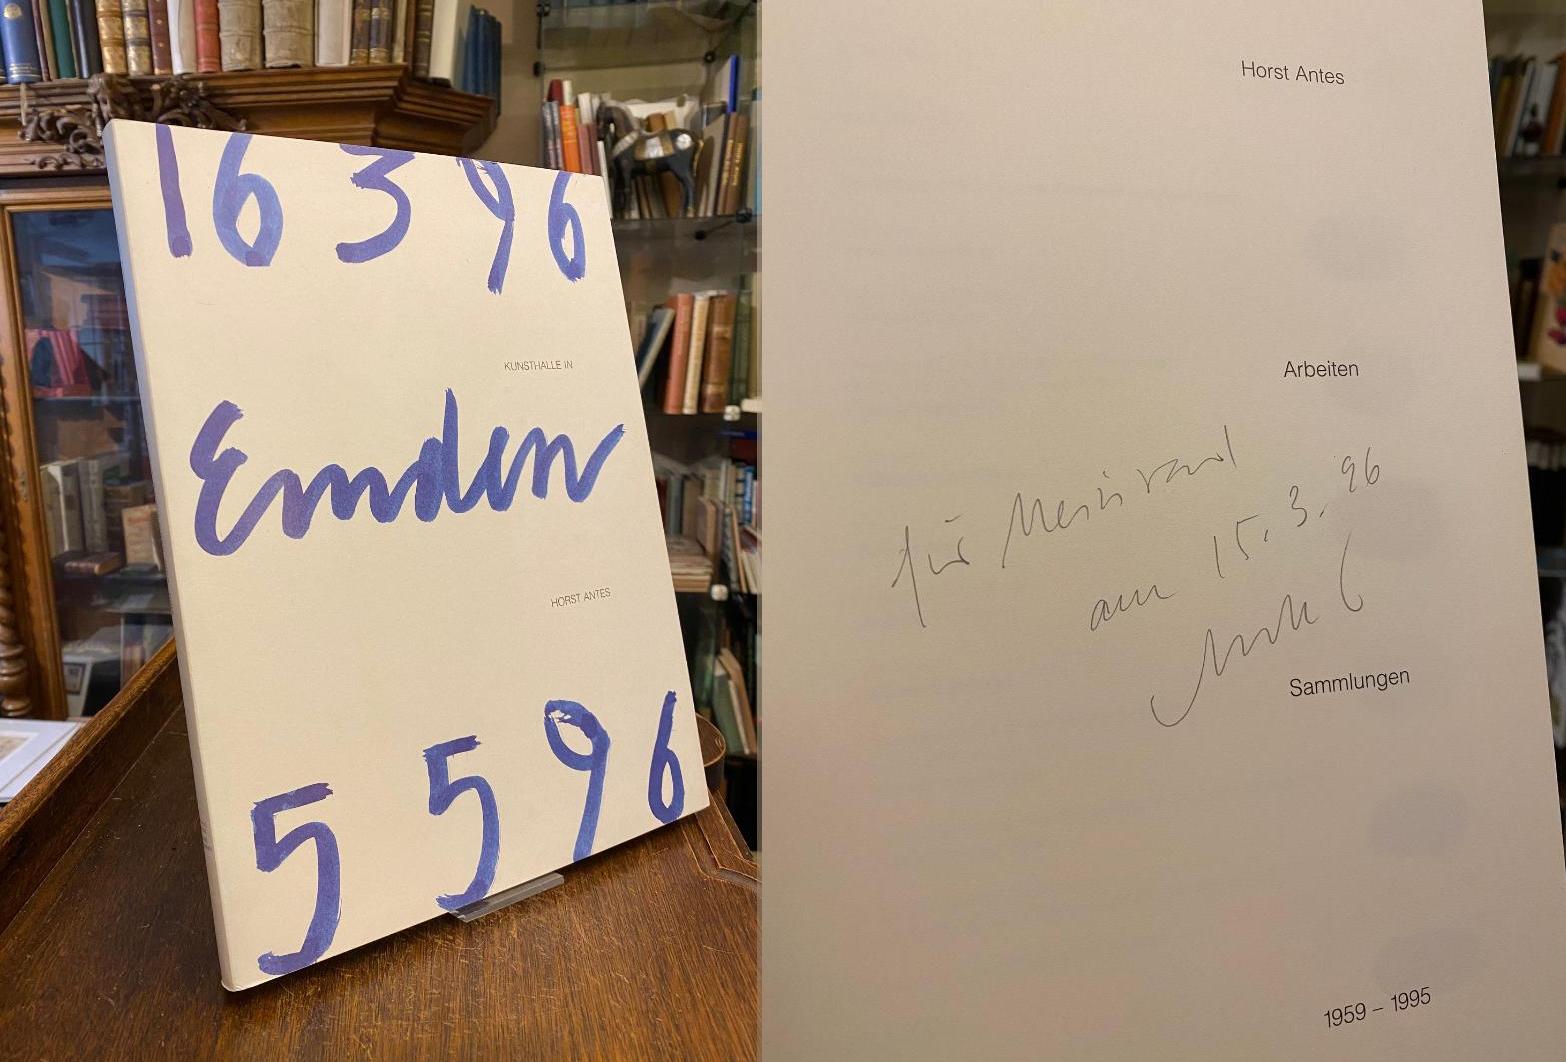 16 3 96
KUNSTHALLE IN
Emden
HORST ANTES
5 5 96
Horst Antes
Arbeiten
für Meinrad
am 15.3.96
Sammlungen
1959 – 1995